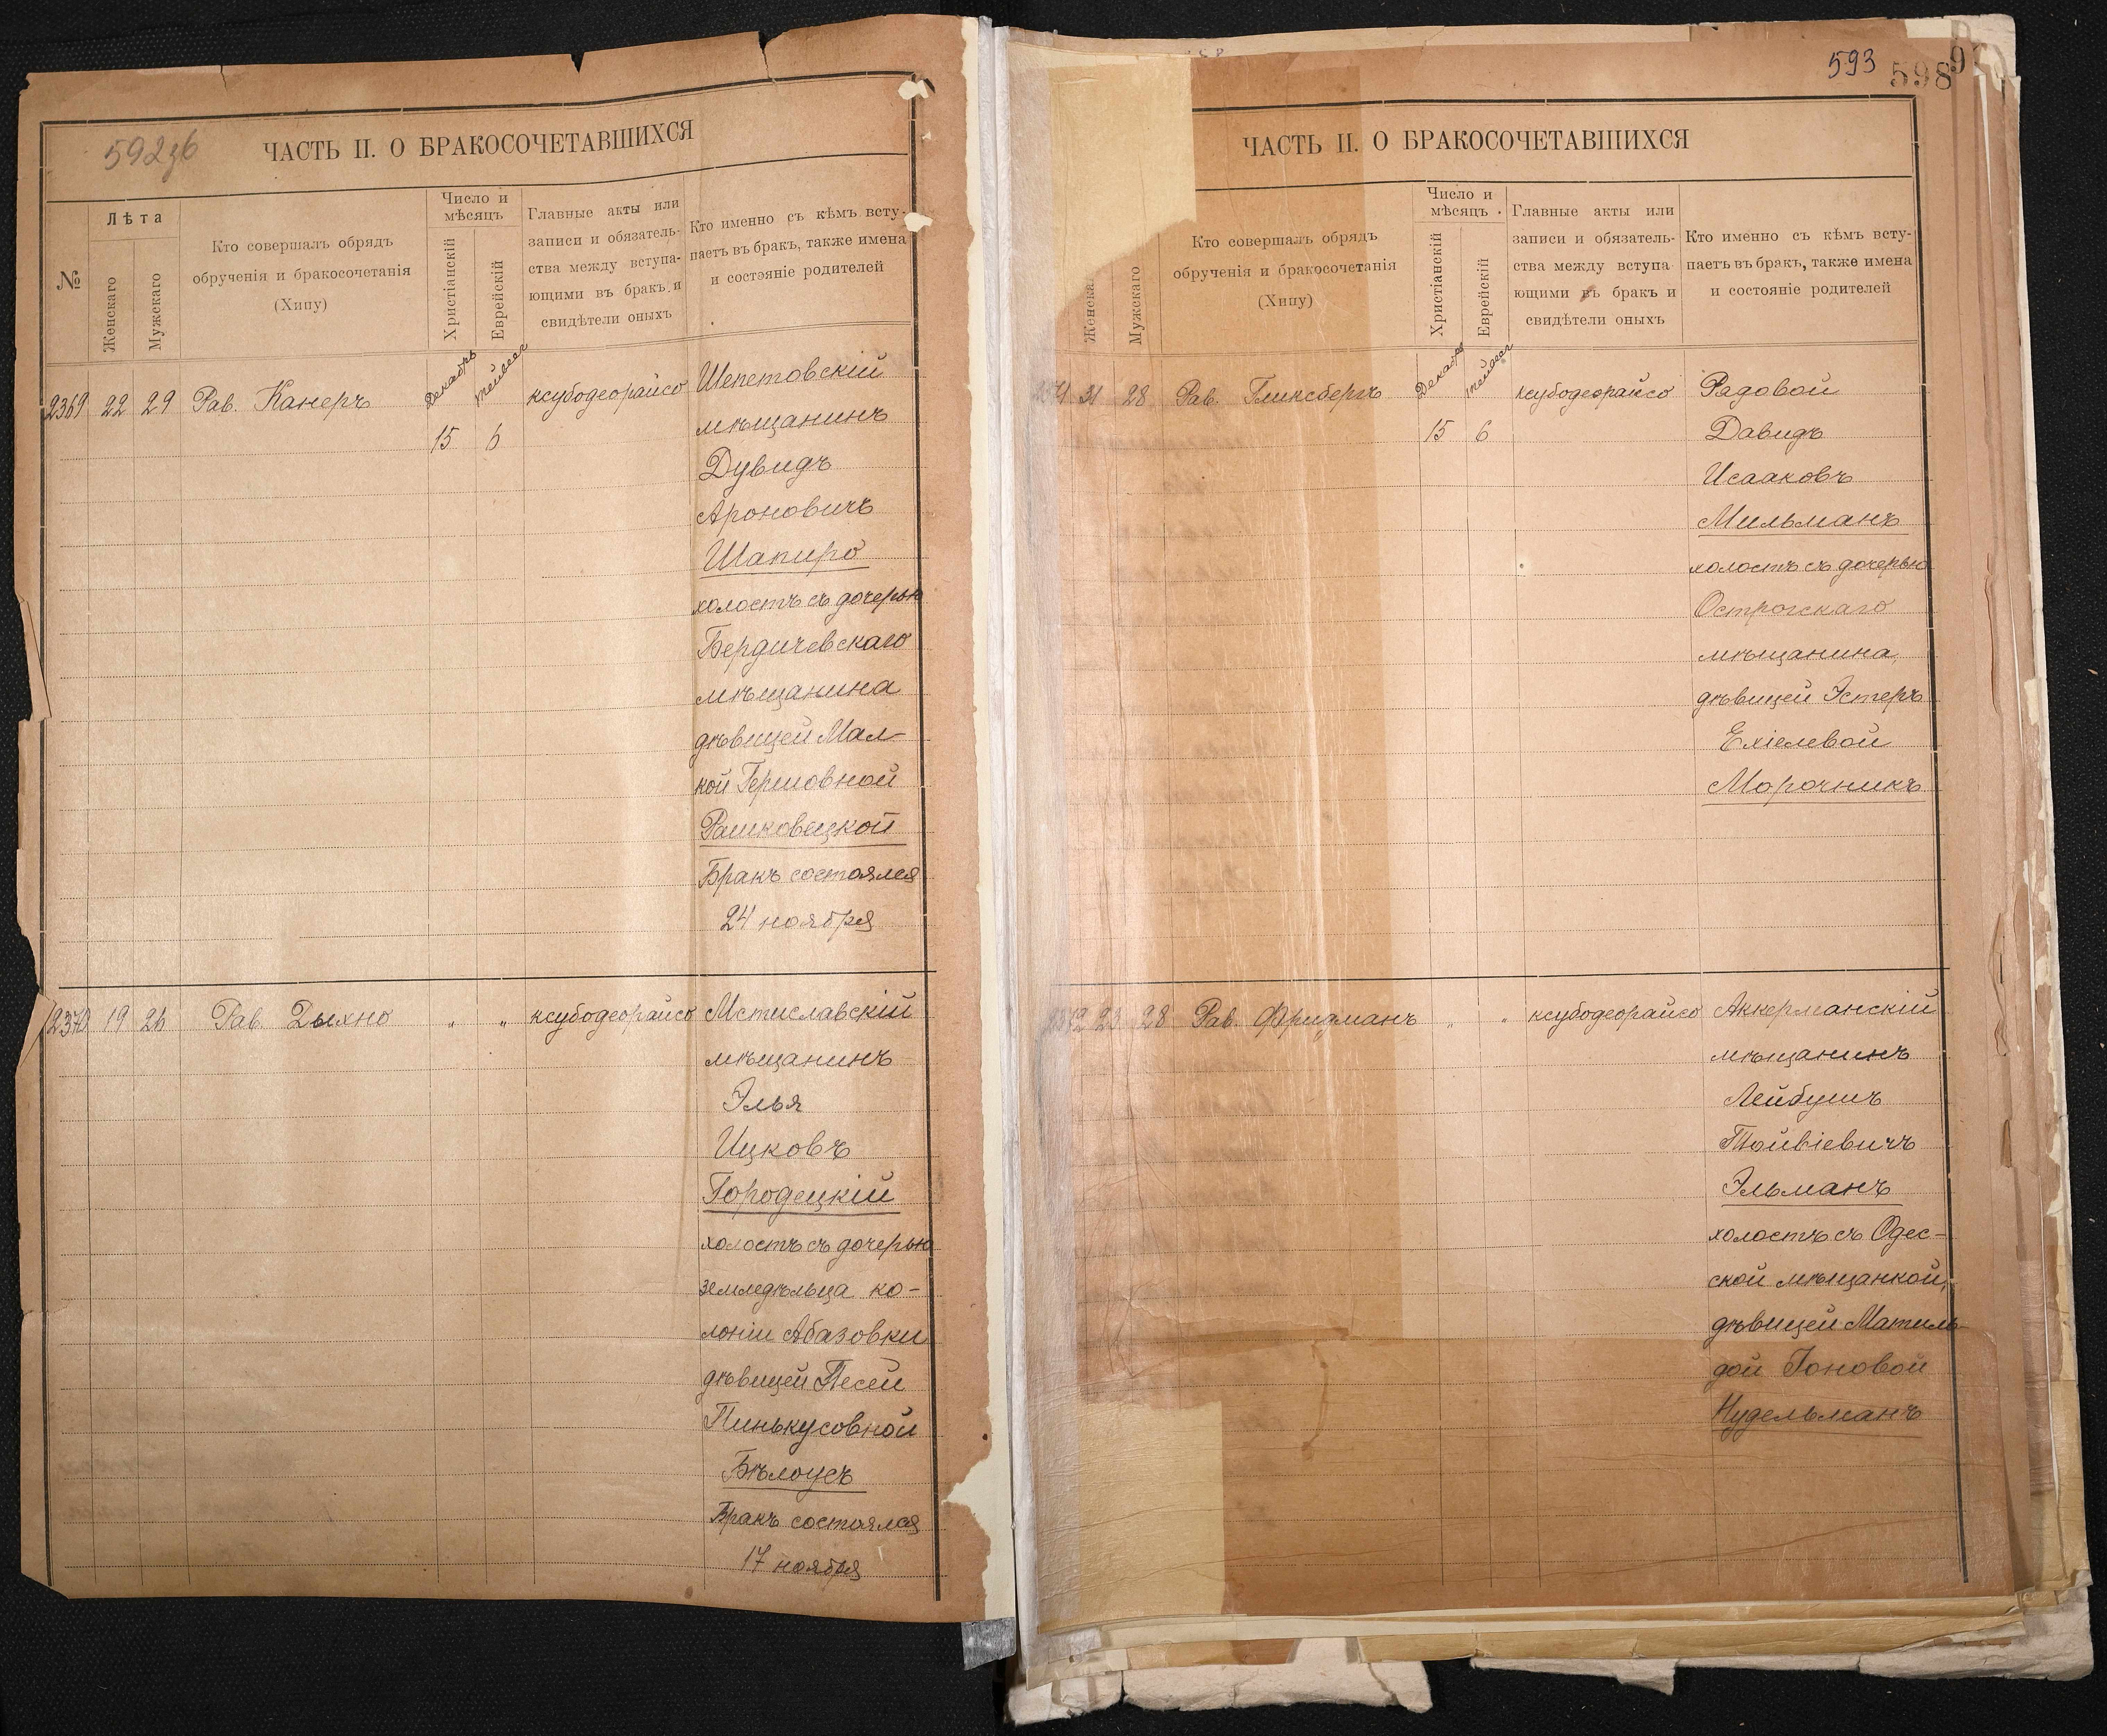 592зб
ЧАСТЬ II. О БРАКОСОЧЕТАВШИХСЯ
№
Лѣта
Женскаго
Мужескаго
Кто совершалъ обрядъ
обрученія и бракосочетанія
(Хипу)
Число и
мѣсяцъ
Христіанскій
Еврейскій
Главные акты или
записи и обязатель-
ства между вступа-
ющими въ бракъ и
свидѣтели оныхъ
Кто именно съ кѣмъ всту-
паетъ въ бракъ, также имена
и состояніе родителей
2369 22 29 Рав. Канеръ Декабрь тейвес ксубодеорайсо Шепетовскій
15 6 мѣщанинъ
Дувидъ
Ароновичъ
Шапиро
холостъ съ дочерью
Бердичевскаго
мѣщанина
дѣвицей Мал-
кой Гершовной
Рашковецкой
Бракъ состоялся
24 ноября
2370 19 26 Рав. Дыхно " " ксубодеорайсо Мстиславскій
мѣщанинъ
Элья
Ицковъ
Городецкій
холостъ съ дочерью
земледѣльца ко-
лоніи Абазовки
дѣвицей Песей
Пинькусовной
Бѣлоусъ
Бракъ состоялся
17 ноября
593
598
9
ЧАСТЬ II. О БРАКОСОЧЕТАВШИХСЯ
Женска
Мужскаго
Кто совершалъ обрядъ
обрученія и бракосочетанія
(Хипу)
Число и
мѣсяцъ
Христіанскій
Еврейскій
Главные акты или
записи и обязатель-
ства между вступа
ющими въ бракъ и
свидѣтели оныхъ
Кто именно съ кѣмъ всту-
паетъ въ бракъ, также имена
и состояніе родителей
31 28 Рав. Гликсбергъ Декабрь тейвес ксубодеорайсо Рядовой
15 6 Давидъ
Исааковъ
Мильманъ
холостъ съ дочерью
Острожскаго
мѣщанина,
дѣвицей Эстеръ
Ехіелевой
Морочникъ
23 28 Рав. Фридманъ " " ксубодеорайсо Аккерманскій
мѣщанинъ
Лейбушъ
Тойвіевичъ
Эльманъ
холостъ съ Одес-
ской мѣщанкой,
дѣвицей Матиль-
дой Іоновой
Нудельманъ